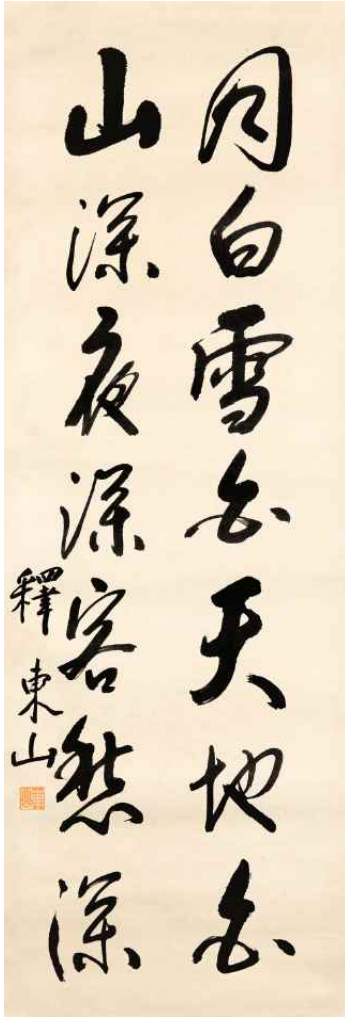 月白雪白天地白
山深夜深客愁深
釋東山